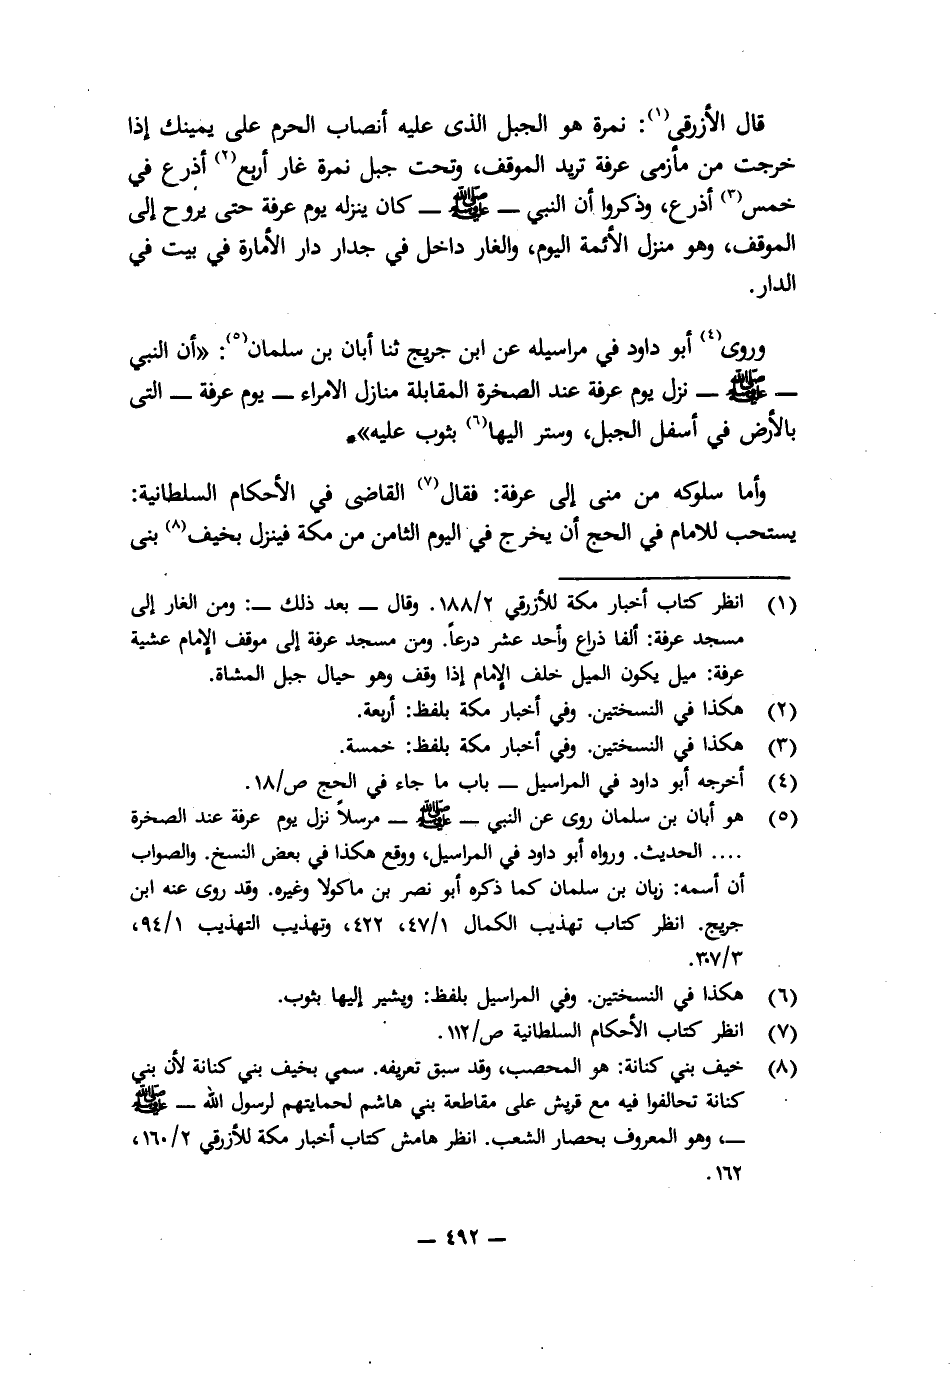 قال الأزرقى(١): نمرة هو الجبل الذى عليه أنصاب الحرم على يمينك إذا
خرجت من مأزمى عرفة تريد الموقف، وتحت جبل نمرة غار أربع(٢) أذرع في
خمس(٣) أذرع، وذكروا أن النبي ــ ﷺ ــ كان ينزله يوم عرفة حتى يروح إلى
الموقف، وهو منزل الأئمة اليوم، والغار داخل في جدار دار الأمارة في بيت في
الدار.
وروى(٤) أبو داود في مراسيله عن ابن جريج ثنا أبان بن سلمان(٥): «أن النبي
ــ ﷺ ــ نزل يوم عرفة عند الصخرة المقابلة منازل الامراء ــ يوم عرفة ــ التى
بالأرض في أسفل الجبل، وستر اليها(٦) بثوب عليه».
وأما سلوكه من منى إلى عرفة: فقال(٧) القاضى في الأحكام السلطانية:
يستحب للامام في الحج أن يخرج في اليوم الثامن من مكة فينزل بخيف(٨) بنى
(١) انظر كتاب أخبار مكة للأزرقي ١٨٨/٢. وقال ــ بعد ذلك ــ: ومن الغار إلى
مسجد عرفة: ألفا ذراع وأحد عشر درعاً. ومن مسجد عرفة إلى موقف الإمام عشية
عرفة: ميل يكون الميل خلف الإمام إذا وقف وهو حيال جبل المشاة.
(٢) هكذا في النسختين. وفي أخبار مكة بلفظ: أربعة.
(٣) هكذا في النسختين. وفي أخبار مكة بلفظ: خمسة.
(٤) أخرجه أبو داود في المراسيل ــ باب ما جاء في الحج ص/١٨.
(٥) هو أبان بن سلمان روى عن النبي ــ ﷺ ــ مرسلاً نزل يوم عرفة عند الصخرة
.... الحديث. ورواه أبو داود في المراسيل، ووقع هكذا في بعض النسخ. والصواب
أن أسمه: زبان بن سلمان كما ذكره أبو نصر بن ماكولا وغيره. وقد روى عنه ابن
جريج. انظر كتاب تهذيب الكمال ٤٧/١، ٤٢٢، وتهذيب التهذيب ٩٤/١،
٣٠٧/٣.
(٦) هكذا في النسختين. وفي المراسيل بلفظ: ويشير إليها بثوب.
(٧) انظر كتاب الأحكام السلطانية ص/١١٢.
(٨) خيف بني كنانة: هو المحصب، وقد سبق تعريفه. سمي بخيف بني كنانة لأن بني
كنانة تحالفوا فيه مع قريش على مقاطعة بني هاشم لحمايتهم لرسول الله ــ ﷺ
ــ، وهو المعروف بحصار الشعب. انظر هامش كتاب أخبار مكة للأزرقي ١٦٠/٢،
١٦٢.
ــ ٤٩٢ ــ